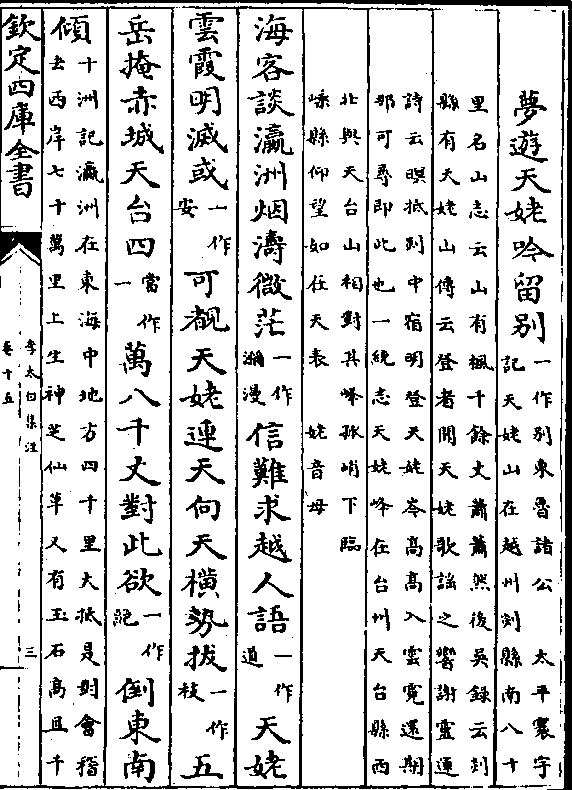 夢遊天姥吟留別 一作別東魯諸公 太平寰宇
記天姥山在越州剡縣南八十
里名山志云山有楓千餘丈蕭蕭然後吳錄云剡
縣有天姥山傳云登者聞天姥歌謡之響謝靈運
詩云暝抵剡中宿明登天姥岑高高入雲霓還期
那可尋即此也一統志天姥峰在台州天台縣西
北與天台山相對其峰孤峭下臨
嵊縣仰望如在天表 姥音母
海客談瀛洲烟濤微茫一作瀰漫信難求越人語一作道天姥
雲霞明滅或一作安可覩天姥連天向天橫勢拔一作枝五
岳掩赤城天台四當作一萬八千丈對此欲一作絶倒東南
傾 十洲記瀛洲在東海中地方四千里大抵是對會稽
去西岸七十萬里上生神芝仙草又有玉石高且千
欽定四庫全書
李太白集注
卷十五
三